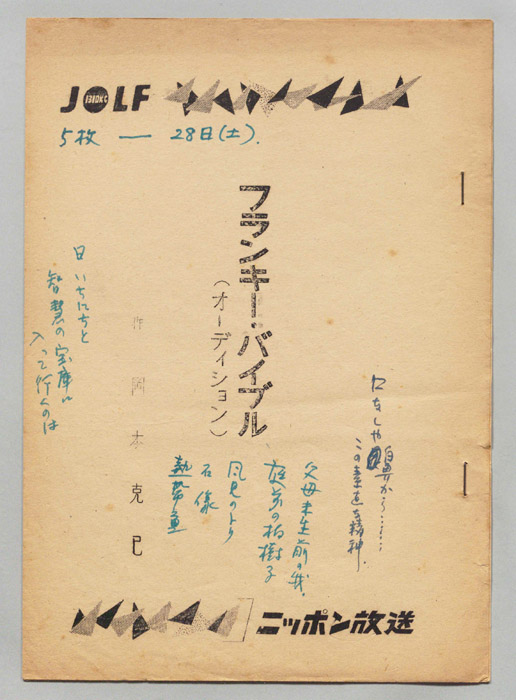 JOLF
1310KC
5枚 — 28日(土).
フランキー・バイブル
(オーディション)
作 岡本克己
口をしや鼻から……
この素直な精神.
父母未生前の我.
庭前の柏樹子
風見のとり
石像
熱帯魚
日いちにちと
智慧の宝庫に
入って行くのは
ニッポン放送